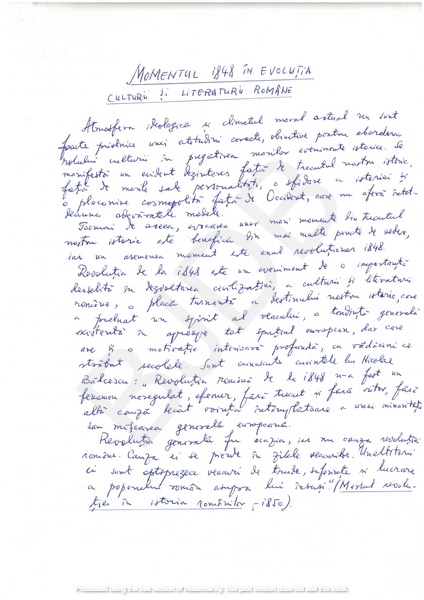 MOMENTUL 1848 ÎN EVOLUȚIA
CULTURII ȘI LITERATURII ROMÂNE
Atmosfera ideologică și climatul moral actual nu sunt
foarte prielnice unei atitudini corecte, obiective pentru abordarea
rolului culturii în pregătirea marilor evenimente istorice. Se
manifestă un evident dezinteres față de trecutul nostru istoric,
față de marile sale personalități, o sfidare a istoriei și
o plecăciune cosmopolită față de Occident, care nu oferă întot-
deauna adevăratele modele.
Tocmai de aceea, evocarea unor mari momente din trecutul
nostru istoric este benefică din mai multe puncte de vedere,
iar un asemenea moment este anul revoluționar 1848.
Revoluția de la 1848 este un eveniment de o importanță
deosebită în dezvoltarea civilizației, a culturii și literaturii
române, o placă turnantă a destinului nostru istoric, care
a preluat un spirit al veacului, o tendință generală
existentă în aproape tot spațiul european, dar care
are și o motivație interioară profundă, cu rădăcini ce
străbat secolele. Sunt cunoscute cuvintele lui Nicolae
Bălcescu: „Revoluția română de la 1848 n-a fost un
fenomen neregulat, efemer, fără trecut și fără viitor, fără
altă cauză decât voința întâmplătoare a unei minorități
sau mișcarea generală europeană.
Revoluția generală fu ocazia, iar nu cauza revoluției
române. Cauza ei se pierde în zilele veacurilor. Uneltitorii
ei sunt optsprezece veacuri de trude, suferințe și lucrare
a poporului român asupra lui însuși" (Mersul revolu-
ției în istoria românilor, -1850).